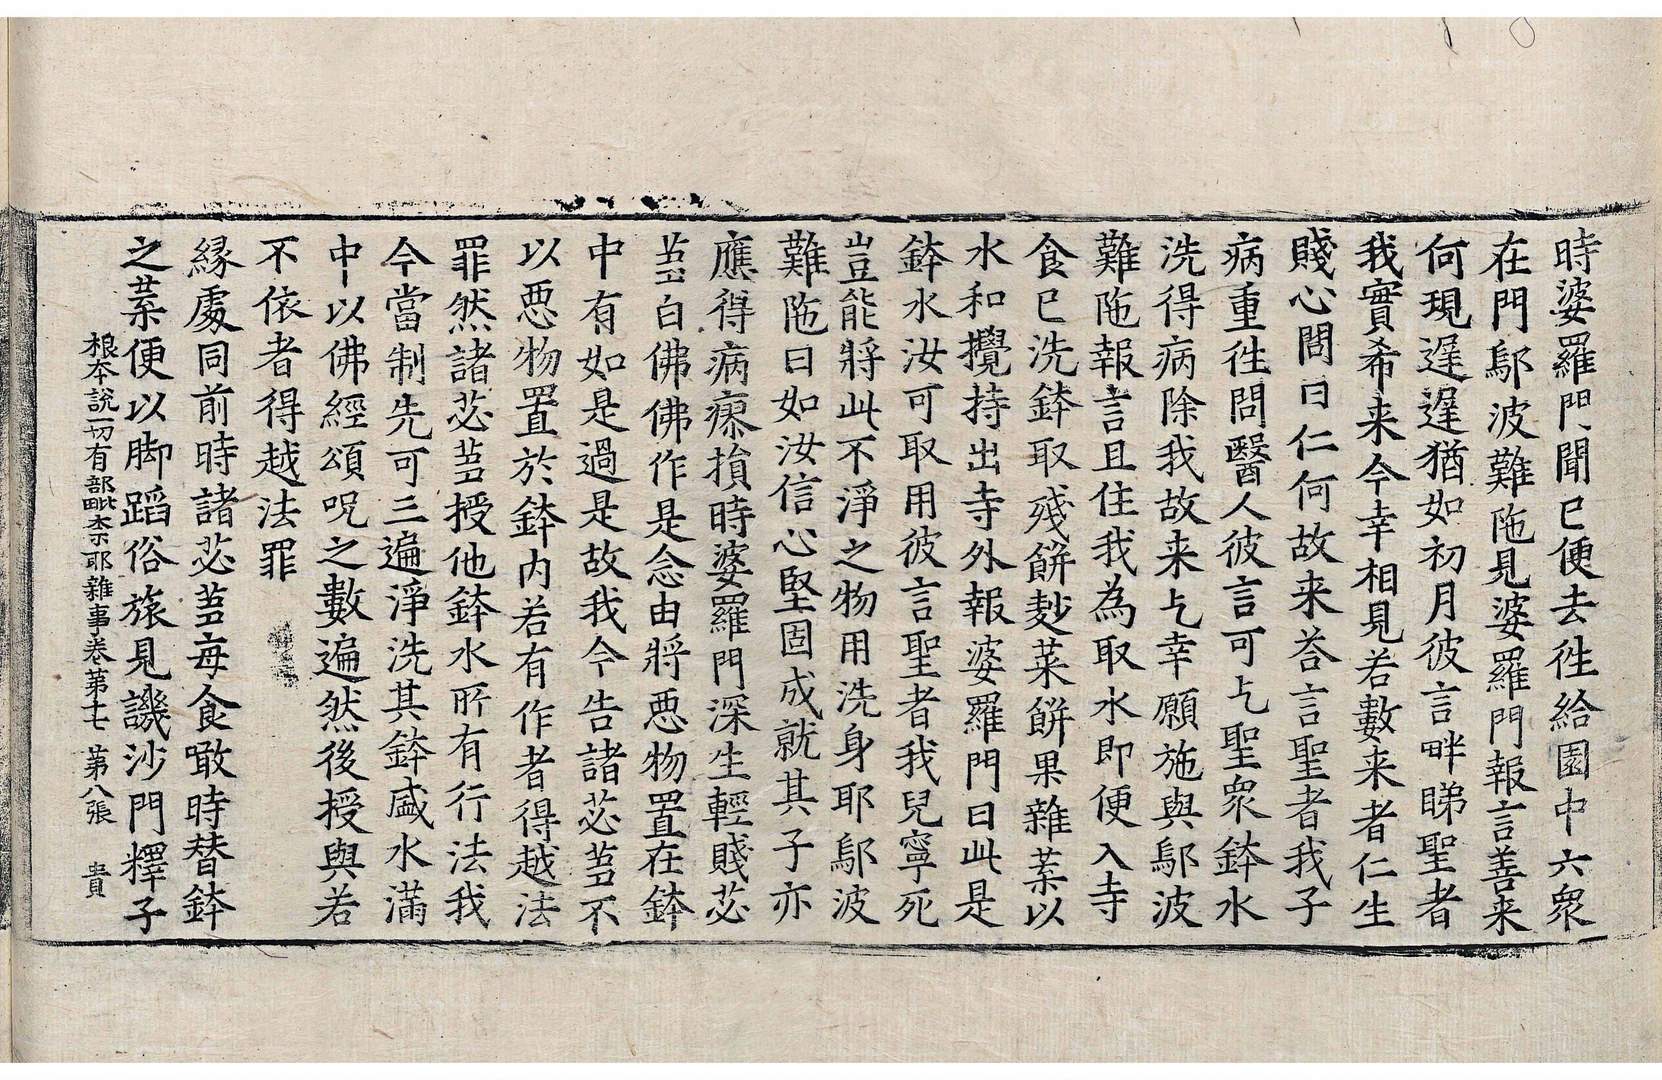 時婆羅門聞已便去徃給園中六衆
在門鄔波難陁見婆羅門報言善来
何現遟遟猶如初月彼言畔睇聖者
我實希来今幸相見若數来者仁生
賤心問曰仁何故来荅言聖者我子
病重徃問醫人彼言可乞聖衆鉢水
洗得病除我故来乞幸願施與鄔波
難陁報言且住我為取水即便入寺
食已洗鉢取殘餅麨菜餅果雜葉以
水和攪持出寺外報婆羅門曰此是
鉢水汝可取用彼言聖者我兒寧死
豈能將此不淨之物用洗身耶鄔波
難陁曰如汝信心堅固成就其子亦
應得病瘝損時婆羅門深生輕賤苾
蒭白佛佛作是念由將惡物置在鉢
中有如是過是故我今告諸苾蒭不
以惡物置於鉢內若有作者得越法
罪然諸苾蒭授他鉢水所有行法我
今當制先可三遍淨洗其鉢盛水滿
中以佛經頌呪之數遍然後授與若
不依者得越法罪
縁處同前時諸苾蒭每食噉時替鉢
之葉便以脚蹈俗旅見譏沙門釋子
根本說一切有部毗柰耶雜事卷第十七　第八張　貴